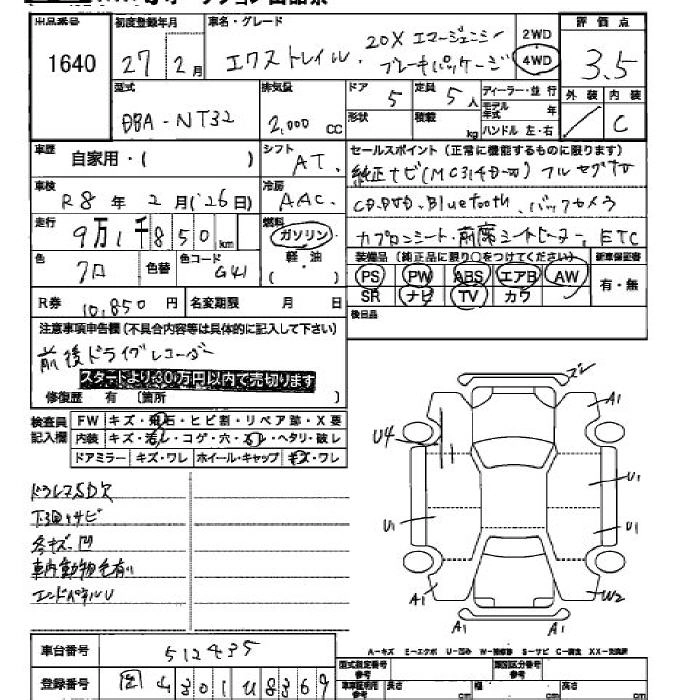 出品番号 1640
初度登録年月 27年 2月
車名・グレード エクストレイル . 20X エマージェンシー ブレーキパッケージ
2WD 4WD
評価点 3.5
外装 内装 C
型式 DBA-NT32
排気量 2,000 CC
ドア 5 定員 5人
形状 積載 kg
ディーラー・並行
モデル年式 年
ハンドル 左・右
車歴 自家用・( )
シフト AT.
セールスポイント (正常に機能するものに限ります)
純正ナビ(MC314D-W) フルセグTV
CD.DVD.Bluetooth、バックカメラ
カプロンシート、前席シートヒーター、ETC
車検 R8年 2月('26日)
冷房 AAC.
走行 9万1千850km
燃料 ガソリン 軽油 ( )
色 クロ 色替 色コード G41
装備品 (純正品に限り○をつけてください) 新車保証書
PS PW ABS エアB AW 有・無
SR ナビ TV カワ
R券 10,850円 名変期限 月 日
後日品
注意事項申告欄 (不具合内容等は具体的に記入して下さい)
前後ドライブレコーダー
スタートより30万円以内で売切ります
修復歴 有 〔箇所 〕
検査員記入欄
FW キズ・飛石・ヒビ割・リペア跡・X要
内装 キズ・汚レ・コゲ・穴・ヘタリ・破レ
ドアミラー キズ・ワレ ホイール・キャップ キズ・ワレ
ドラレコSD欠
下回りサビ
各キズ.凹
車内動物毛有り
エンドパネルU
A1
U4
U1
U1
U1
A1 W2
A1 A1
A-キズ E-エクボ U-凹み W-補修跡 S-サビ C-腐食 XX-交換済
車台番号 512435
型式指定番号 参考
類別区分番号 参考
登録番号 4301U8369
車車証明用 参考 長さ cm 幅 cm 高さ cm